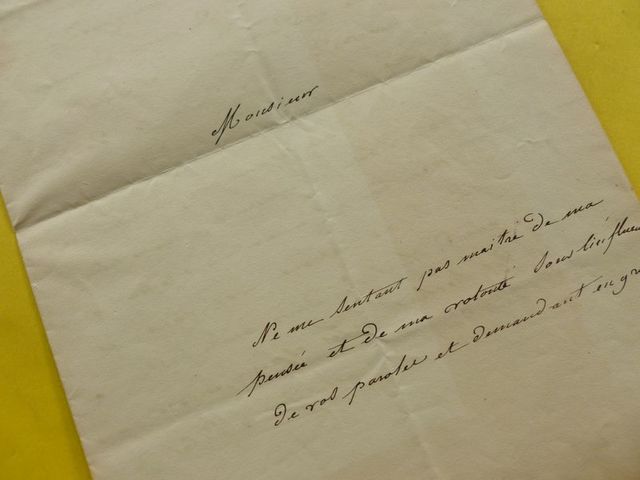 Monsieur
Ne me sentant pas maitre de ma
pensée et de ma volonté sous l'influen
de vos paroles et demandant en gr